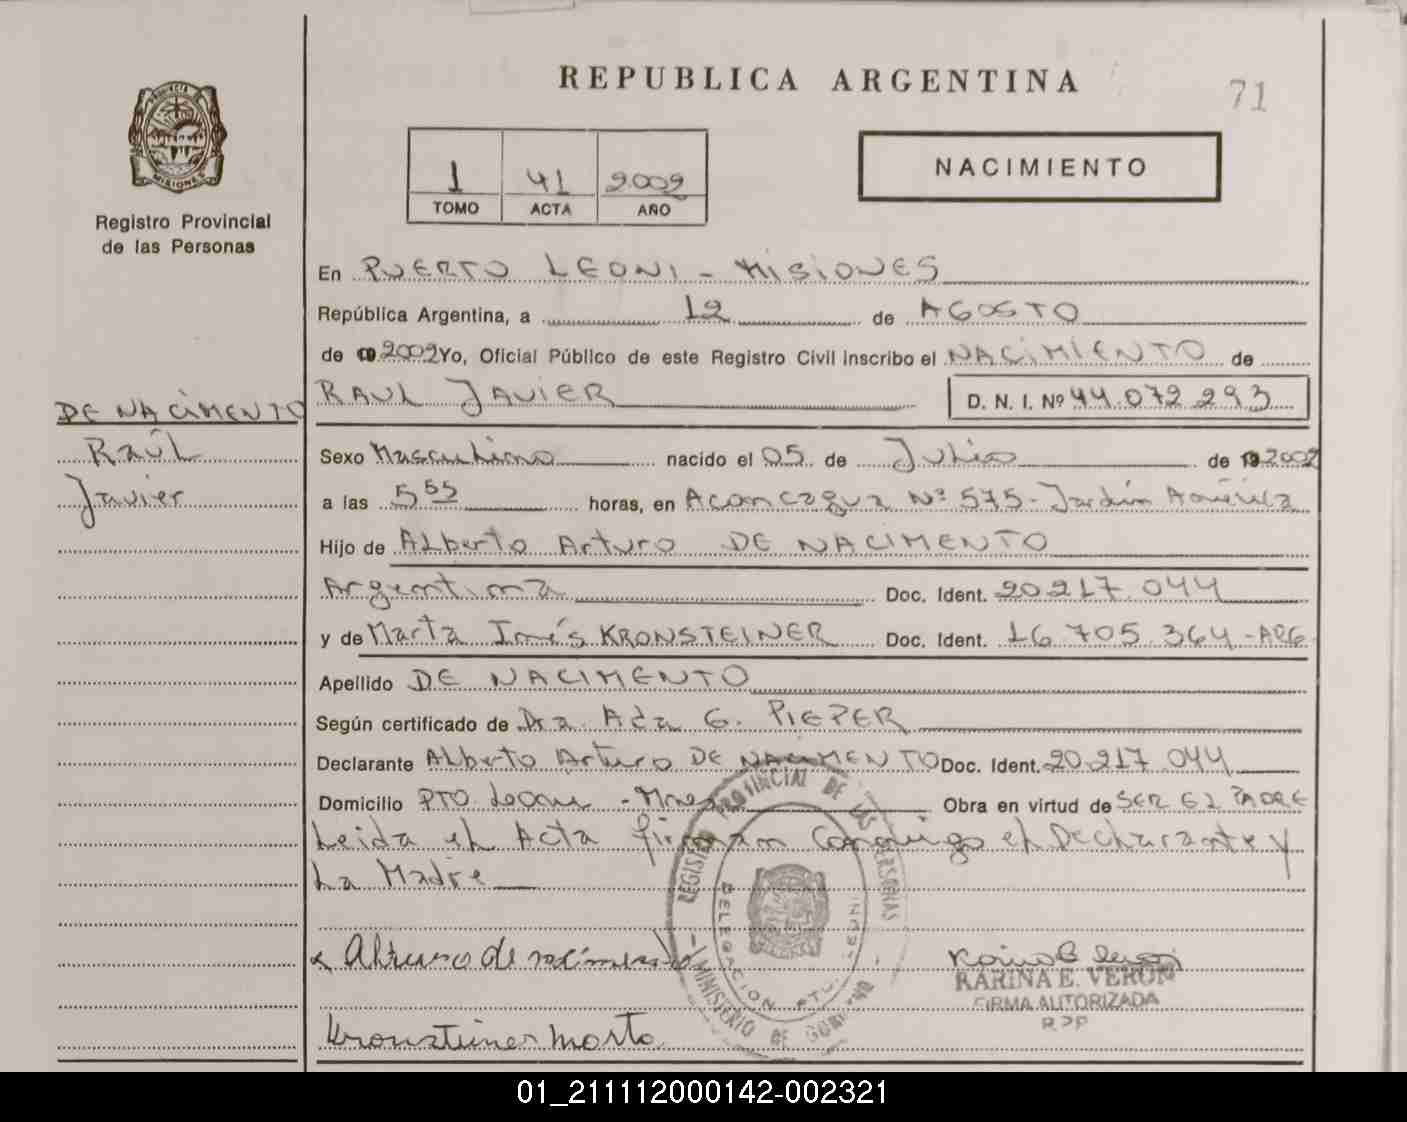 REPUBLICA ARGENTINA
71
PROVINCIA DE MISIONES
Registro Provincial
de las Personas
1 41 2002
TOMO ACTA AÑO
NACIMIENTO
En PUERTO LEONI - MISIONES
República Argentina, a 12 de AGOSTO
de 2002 Yo, Oficial Público de este Registro Civil inscribo el NACIMIENTO de
RAUL JAVIER D. N. I. Nº 44.072.293
DE NACIMENTO
Raúl
Javier
Sexo Masculino nacido el 05 de Julio de 2002
a las 5⁵⁵ horas, en Aconcagua Nº 575 - Jardín América
Hijo de Alberto Arturo DE NACIMENTO
Argentina Doc. Ident. 20.217.044
y de Marta Inés KRONSTEINER Doc. Ident. 16.705.364 - ARG.
Apellido DE NACIMENTO
Según certificado de Dra. Ada G. PIEPER
Declarante Alberto Arturo DE NACIMENTO Doc. Ident. 20.217.044
Domicilio PTO. Leoni - Mnes Obra en virtud de SER EL PADRE
Leida el Acta firman Conmigo el Declarante y
La Madre
REGISTRO PROVINCIAL DE LAS PERSONAS
DELEGACION PTO. LEONI
- MINISTERIO DE GOBIERNO -
de nacimento
KARINA E. VERON
FIRMA AUTORIZADA
R.P.P
Kronsteiner Marta
01_211112000142-002321